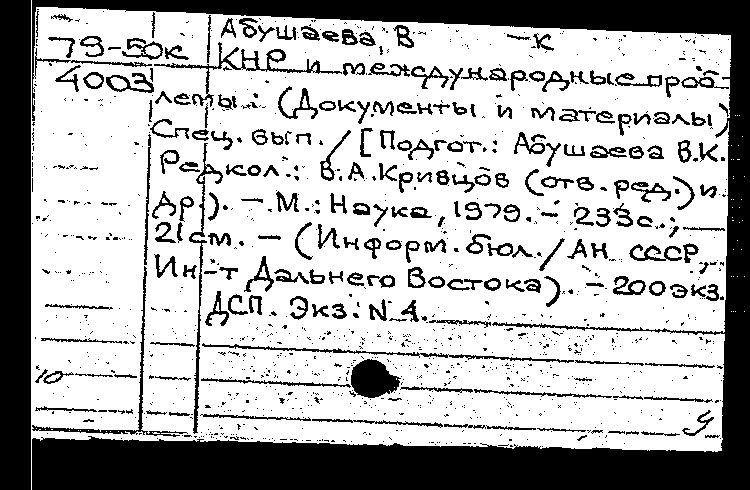 Абушаева, В -к
79-50к КНР и международные проб-
4003 лемы: (Документы и материалы)
Спец. вып. / [Подгот.: Абушаева В.К.
Редкол.: В.А.Кривцов (отв. ред.) и
др.). - М.: Наука, 1979. - 233с.;
21см. - (Информ. бюл. / АН СССР,
Ин-т Дальнего Востока). - 200экз.
ДСП. Экз. N 4.
10
у